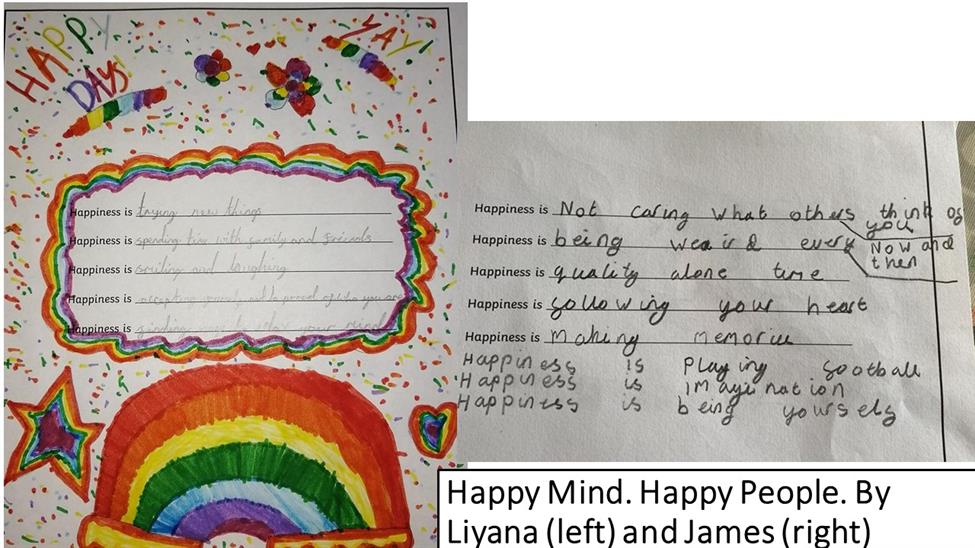 HAPPY
DAYS!
YAY!
Happiness is trying new things
Happiness is spending time with family and friends
Happiness is smiling and laughing
Happiness is accepting yourself and be proud of who you are
Happiness is finding your mind
Happiness is Not caring what others think of
you
Happiness is being weaird every
Now and
then
Happiness is quality alone time
Happiness is following your heart
Happiness is making memories
Happiness is playing football
Happiness is imagination
Happiness is being yourself
Happy Mind. Happy People. By
Liyana (left) and James (right)